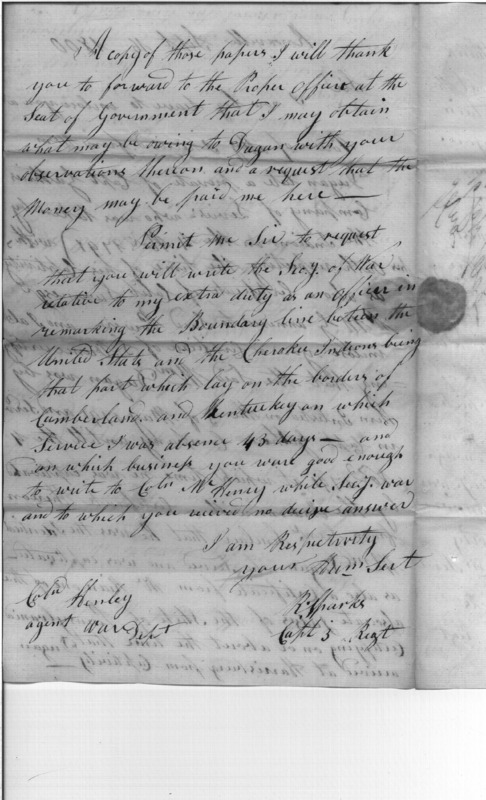 A copy of those papers I will thank
you to forward to the Proper Officer at the
Seat of Government that I may obtain
what may be owing to Dugan with your
observations thereon and a request that the
Money may be paid me here —
Permit me Sir to request
that you will write the Secy. of War
relative to my extra duty as an Officer in
remarking the Boundary line between the
United States and the Cherokee Indians being
that part which lay on the borders of
Cumberland and Kentuckey on which
Service I was absence 43 days — and
on which business you ware good enough
to write to Coln McHenry while Secy. war
and to which you recived no decive answer
I am Respectivly
your Hum Sert
Rd Sparks
Capt 3 Regt
Coln Henley
agent War Dept